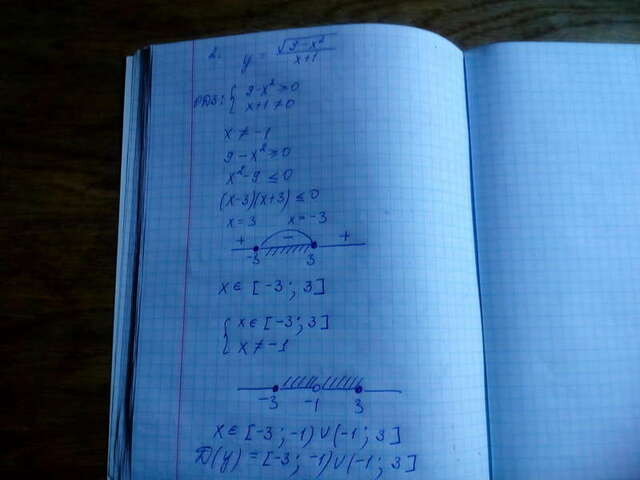 2. y = √(9-x²)/(x+1)
ОДЗ: { 9-x² ≥ 0
x+1 ≠ 0
x ≠ -1
9-x² ≥ 0
x²-9 ≤ 0
(x-3)(x+3) ≤ 0
x = 3 x = -3
+ - +
-3 3
x ∈ [-3; 3]
{ x ∈ [-3; 3]
x ≠ -1
-3 -1 3
x ∈ [-3; -1) ∪ (-1; 3]
D(y) = [-3; -1) ∪ (-1; 3]